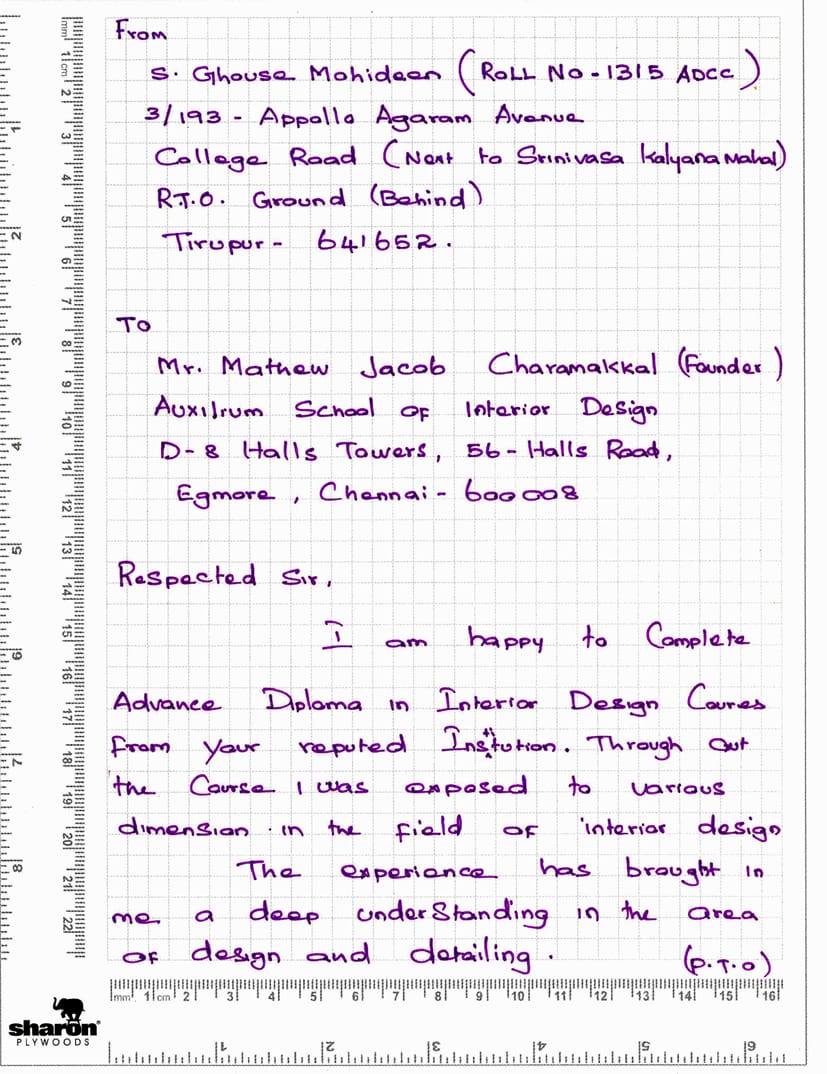 From
S. Ghouse Mohideen (ROLL NO - 1315 ADCC)
3/193 - Appollo Agaram Avenue
College Road (Next to Srinivasa Kalyana Mahal)
R.T.O. Ground (Behind)
Tirupur - 641652.
To
Mr. Mathew Jacob Charamakkal (Founder)
Auxilrum School OF Interior Design
D-8 Halls Towers, 56 - Halls Road,
Egmore, Chennai - 600008
Respected Sir,
I am happy to Complete
Advance Diploma in Interior Design Coures
from your reputed Institution. Through Out
the Course I was exposed to various
dimension in the field OF interior design
The experience has brought in
me a deep understanding in the area
OF design and detailing.
(P.T.O)
mm 1 cm 2 3 4 5 6 7 8 9 10 11 12 13 14 15 16 17 18 19 20 21 22
1 2 3 4 5 6 7 8
mm 1 cm 2 3 4 5 6 7 8 9 10 11 12 13 14 15 16
sharon
PLYWOODS
1 2 3 4 5 6